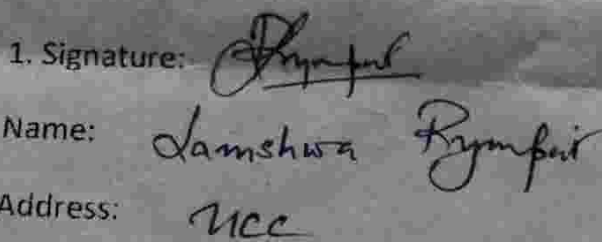 1. Signature: Rympei
Name: Lamshwa Rympei
Address: UCC